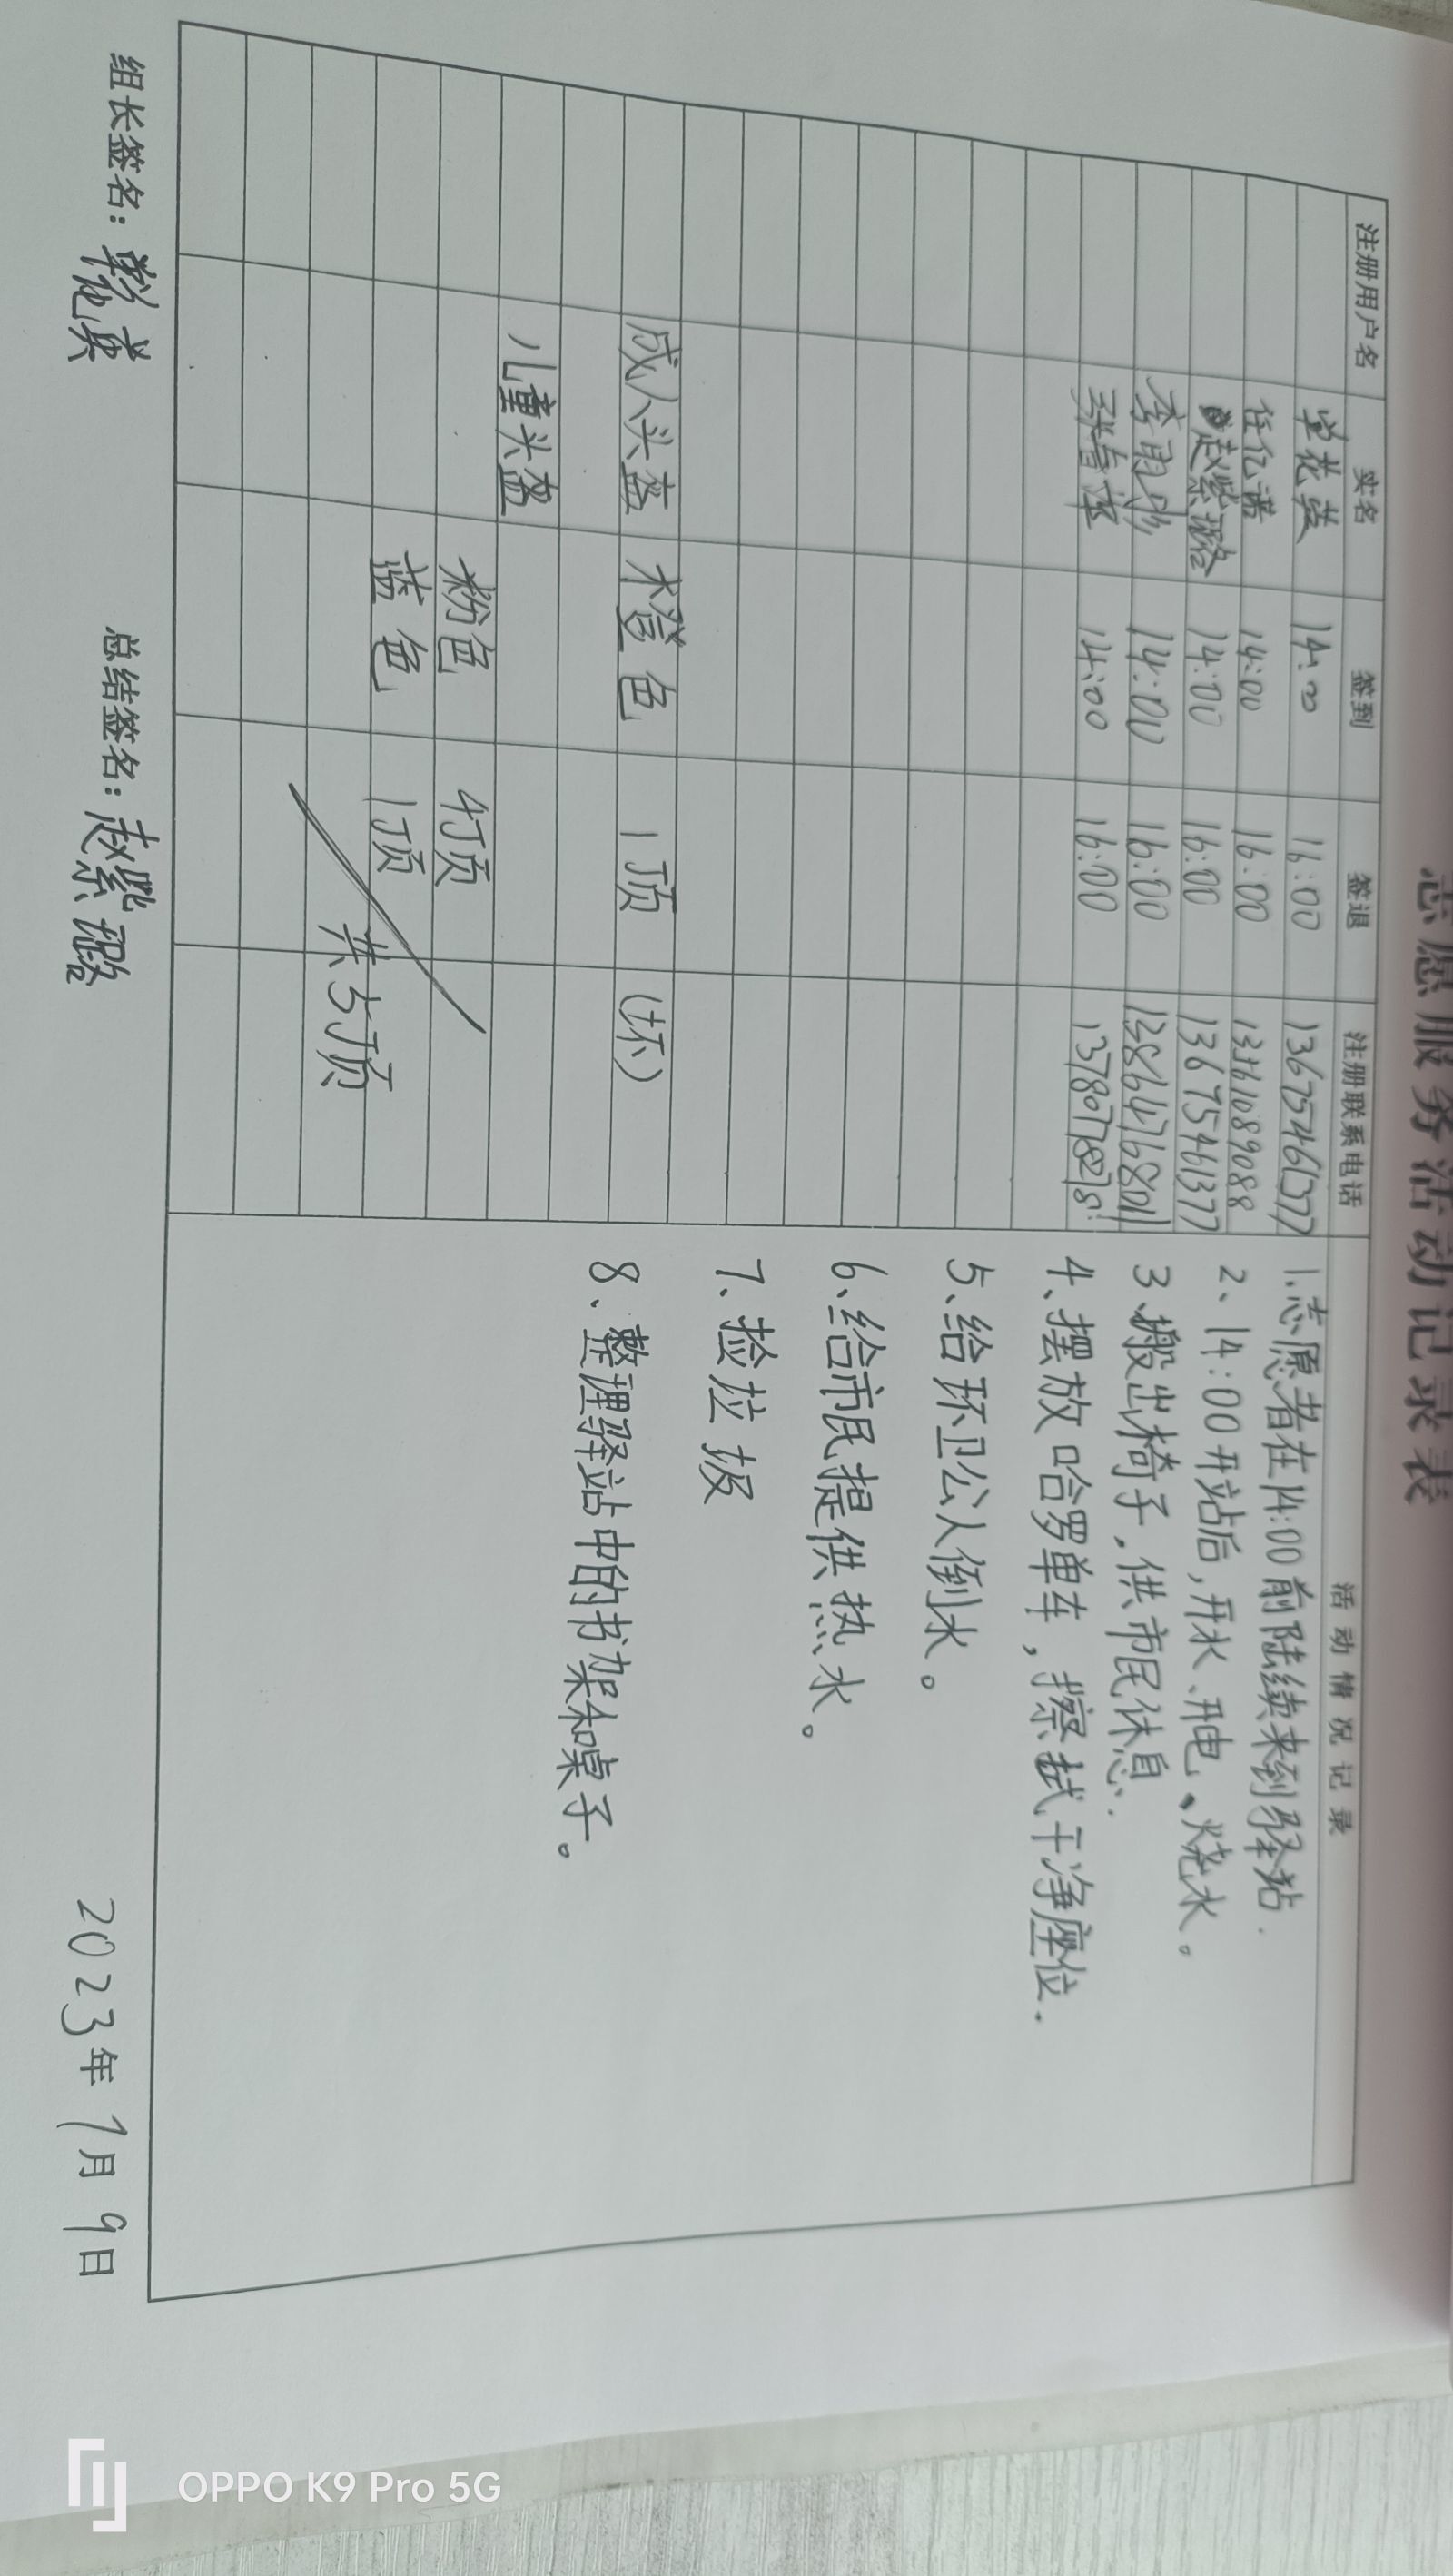 志愿服务活动记录表
注册用户名 实名 签到 签退 注册联系电话 活动情况记录
单花英 14:00 16:00 13675461377
任亿诺 14:00 16:00 13561089088
赵紫璐 14:00 16:00 13675461377
14:00 16:00 13864768011
14:00 16:00
成人头盔 橙色 1顶 (坏)
儿童头盔
粉色 4顶
蓝色 1顶
共5顶
1.志愿者在14:00前陆续来到驿站.
2、14:00开站后,开水、开电、烧水。
3、搬出椅子,供市民休息.
4、摆放哈罗单车,擦拭干净座位.
5、给环卫公人倒水。
6、给市民提供热水。
7、捡垃圾
8、整理驿站中的书架和桌子。
组长签名: 单花英 总结签名: 赵紫璐 2023年1月9日
OPPO K9 Pro 5G